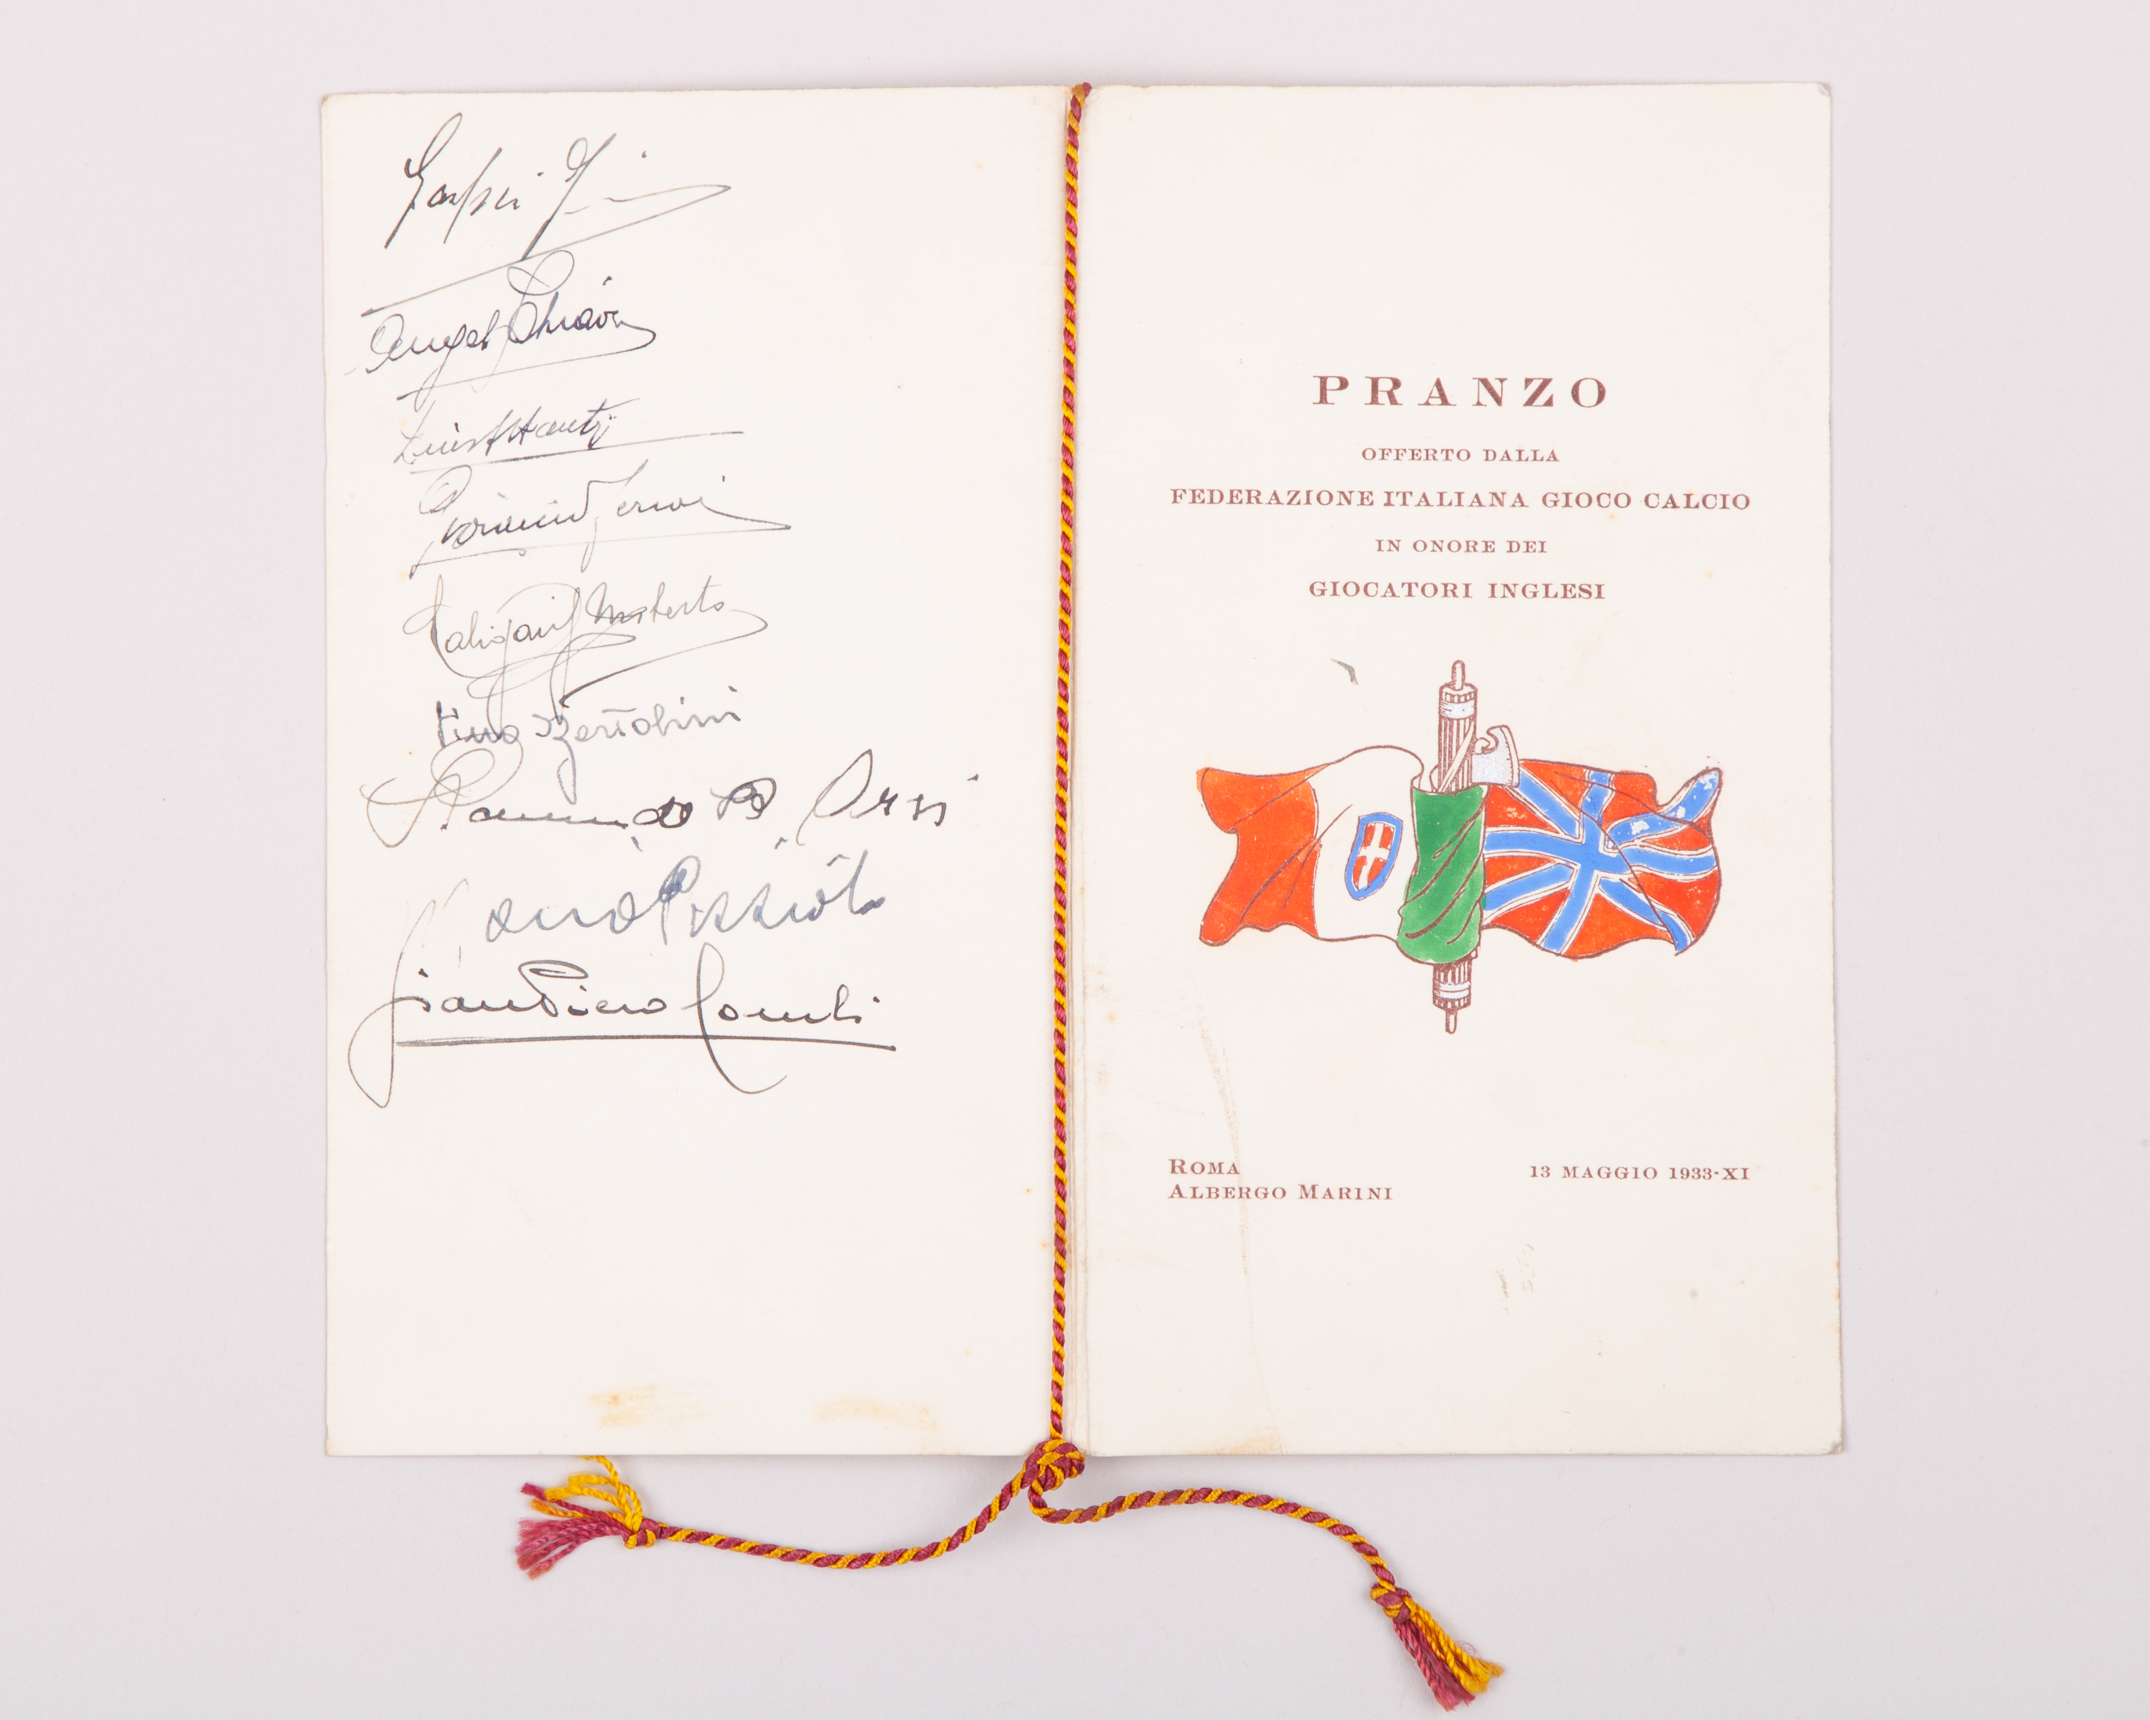 Angelo Schiavio
Luis F Monti
Caligaris Umberto
Pino Bertolini
Raimundo B. Orsi
Mario Pizziolo
GianPiero Combi
PRANZO
OFFERTO DALLA
FEDERAZIONE ITALIANA GIOCO CALCIO
IN ONORE DEI
GIOCATORI INGLESI
ROMA
ALBERGO MARINI
13 MAGGIO 1933-XI